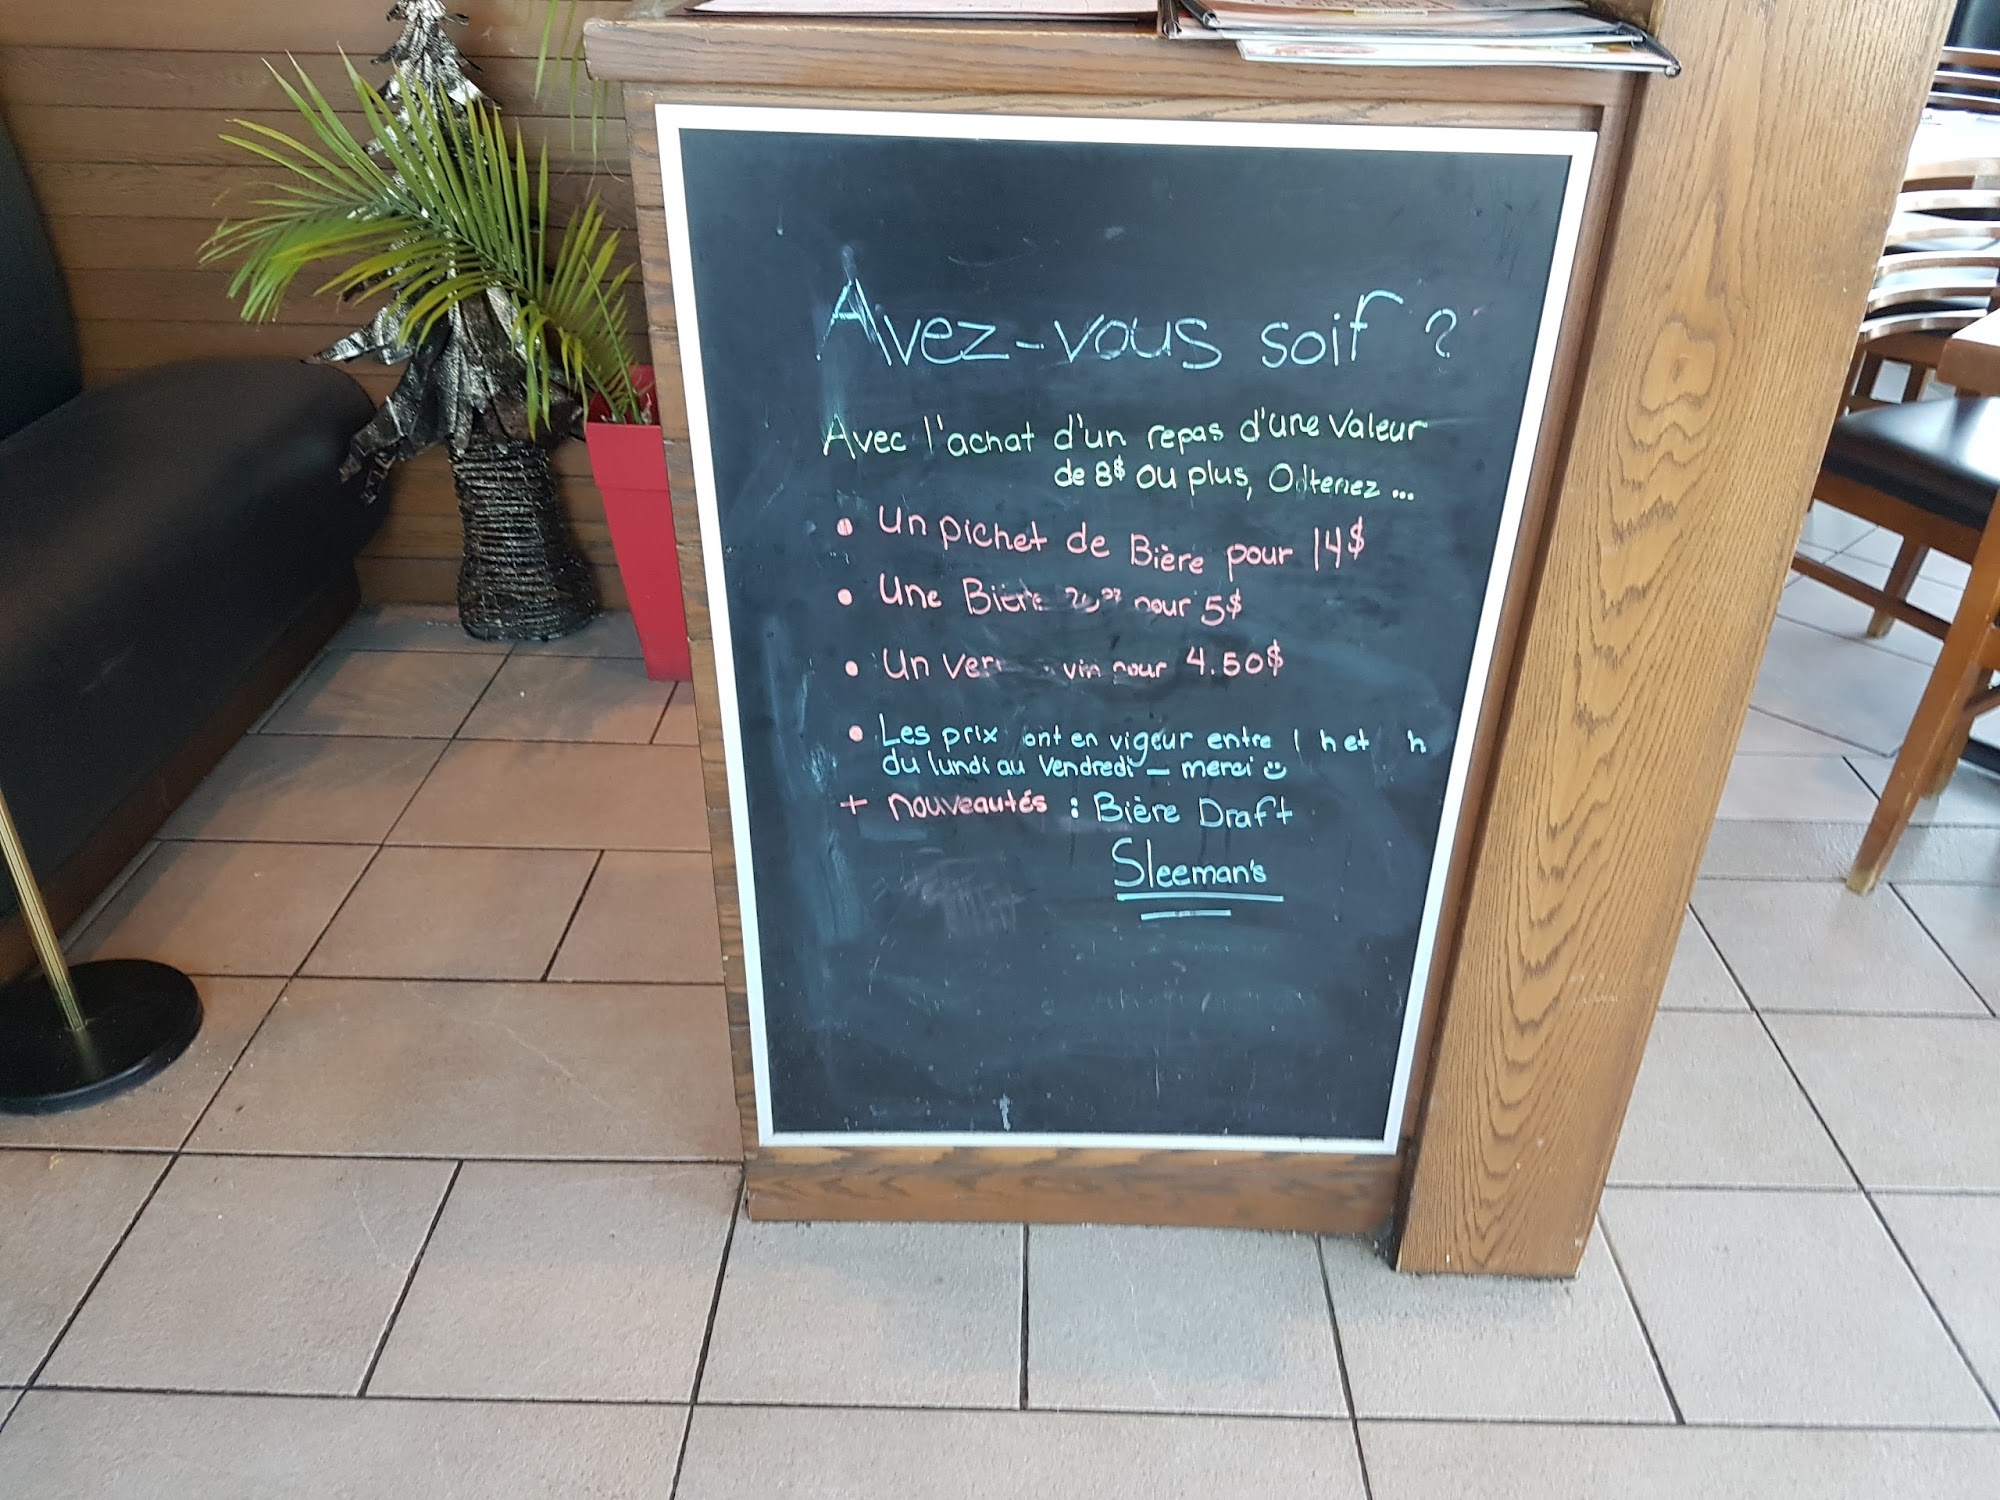 Avez-vous soif ?
Avec l'achat d'un repas d'une valeur
de 8$ ou plus, Obtenez ...
• Un pichet de Bière pour 14$
• Une Bière pour 5$
• Un vin pour 4.50$
• Les prix ont en vigeur entre h et h
du lundi au Vendredi — merci ☺
+ nouveautés : Bière Draft
Sleeman's